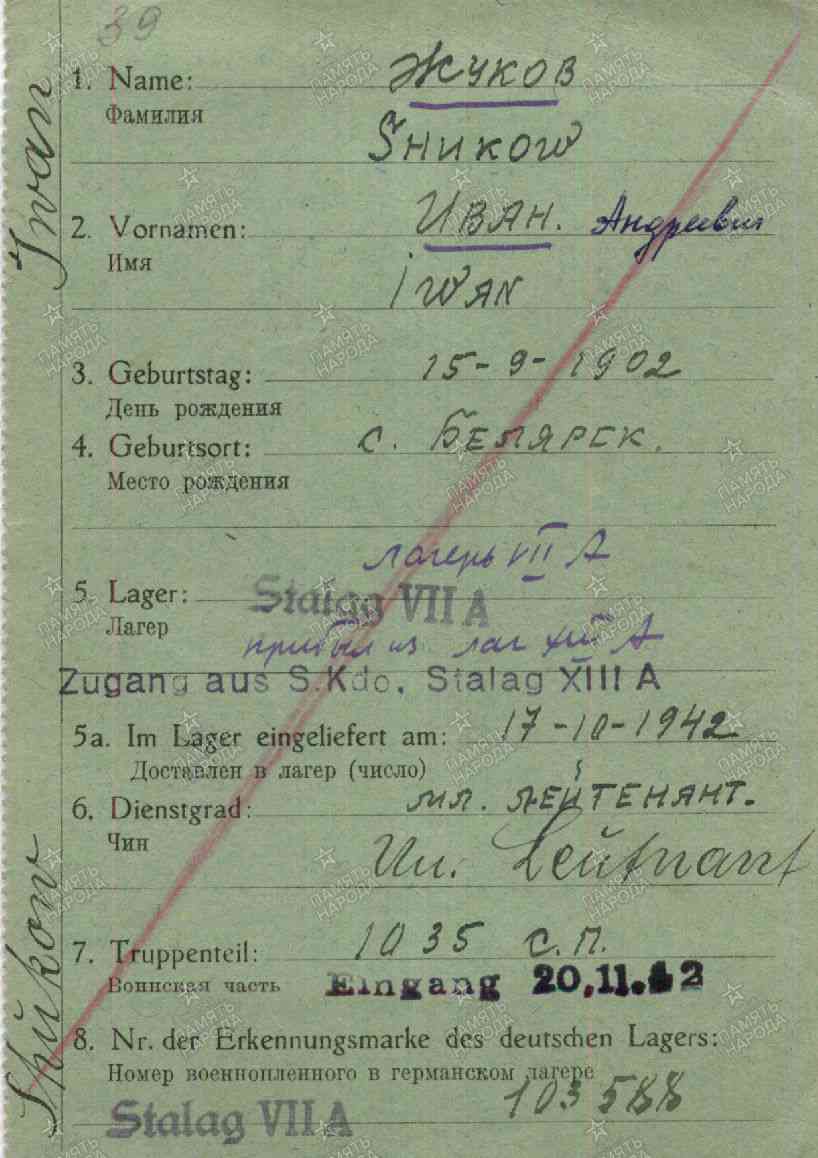 39
1. Name: Жуков
Фамилия
Šhикоw
2. Vornamen: Иван. Андреевич
Имя
iwan
3. Geburtstag: 15-9-1902
День рождения
4. Geburtsort: с. Белярск.
Место рождения
лагерь VII А
5. Lager: Stalag VII A
Лагер
прибыл из лаг XIII А
Zugang aus S.Kdo. Stalag XIII A
5a. Im Lager eingeliefert am: 17-10-1942
Доставлен в лагер (число)
6. Dienstgrad: мл. лейтенант.
Чин
Un. Leutnant
7. Truppenteil: 1035 с.п.
Воинская часть
Eingang 20.11.42
8. Nr. der Erkennungsmarke des deutschen Lagers:
Номер военнопленного в германском лагере
103588
Stalag VII A
Shukow Iwan
ПАМЯТЬ НАРОДА